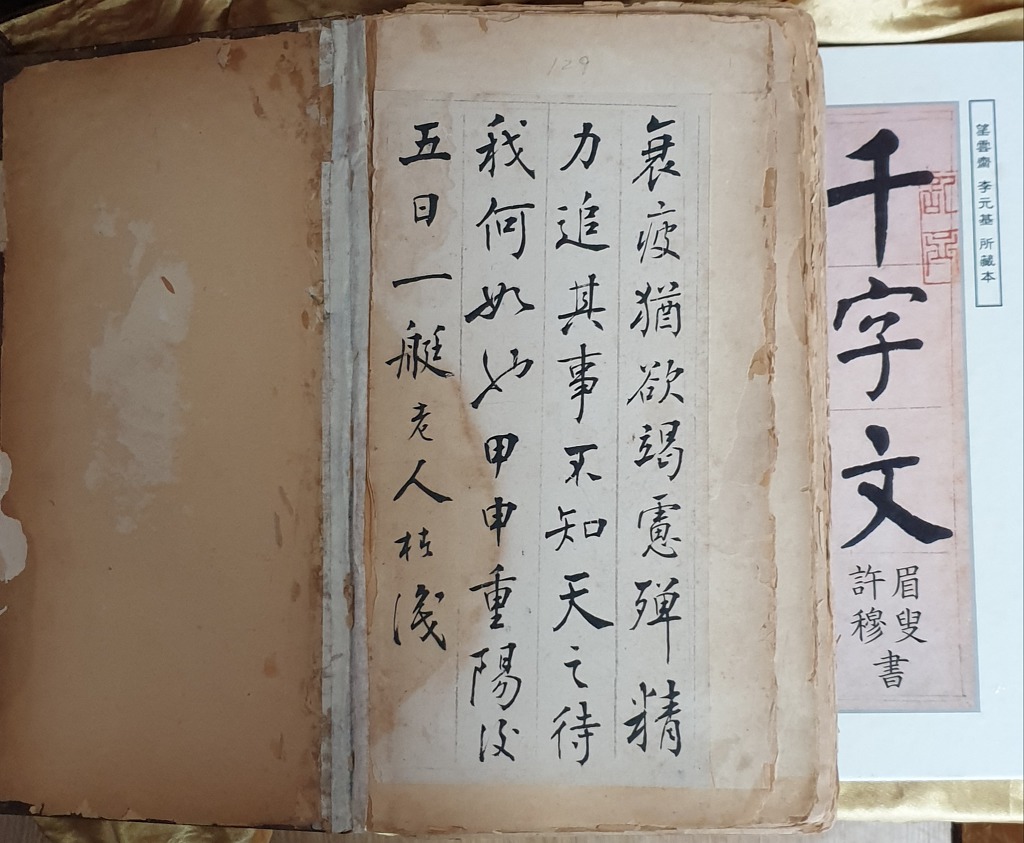 129
衰疲猶欲竭慮殫精
力追其事不知天之待
我何如也甲申重陽後
五日一艇老人
望雲齋 李元基 所藏本
千字文
眉叟
許穆
書